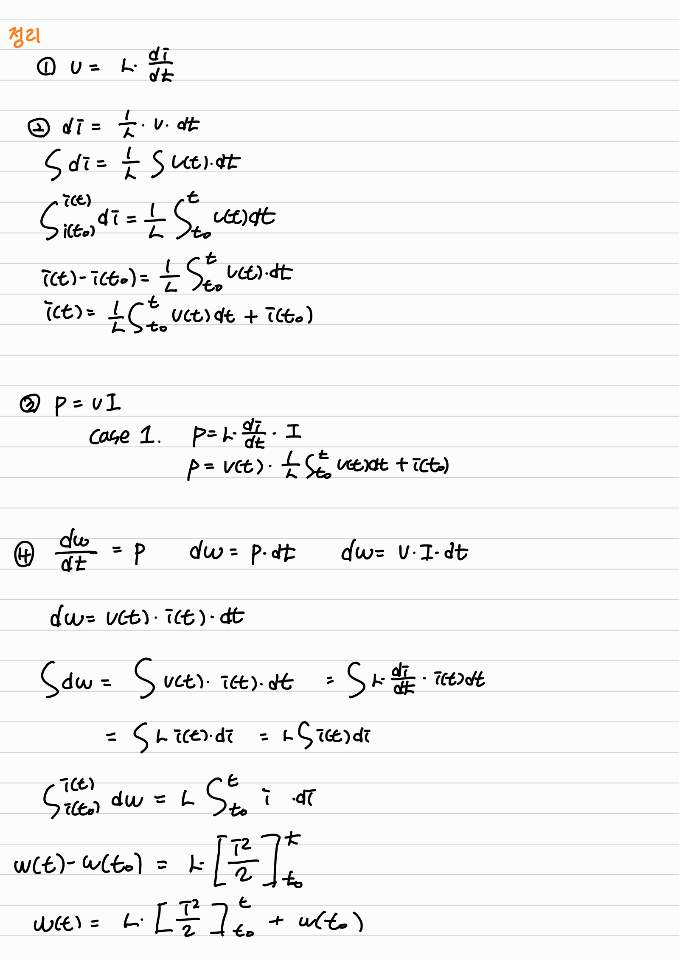 정리
① v = L · di/dt
② di = 1/L · v · dt
∫ di = 1/L ∫ v(t) · dt
∫_{i(t₀)}^{i(t)} di = 1/L ∫_{t₀}^{t} v(t) dt
i(t) - i(t₀) = 1/L ∫_{t₀}^{t} v(t) · dt
i(t) = 1/L ∫_{t₀}^{t} v(t) dt + i(t₀)
③ p = vI
case 1. p = L · di/dt · I
p = v(t) · 1/L ∫_{t₀}^{t} v(t) dt + i(t₀)
④ dw/dt = p dw = p · dt dw = v · I · dt
dw = v(t) · i(t) · dt
∫ dw = ∫ v(t) · i(t) · dt = ∫ L · di/dt · i(t) dt
= ∫ L i(t) · di = L ∫ i(t) di
∫_{i(t₀)}^{i(t)} dw = L ∫_{t₀}^{t} i · di
w(t) - w(t₀) = L · [i²/2]_{t₀}^{t}
w(t) = L · [i²/2]_{t₀}^{t} + w(t₀)